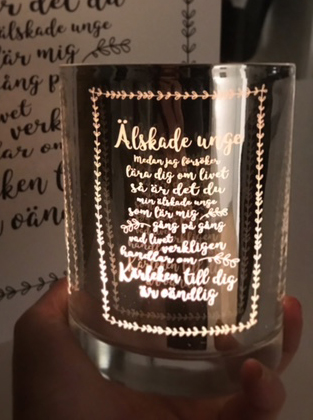 r det du
älskade unge
är mig
ång på
vet
verk
ar om
ken t
oän
Älskade unge
Medan jag försöker
lära dig om livet
så är det du
min älskade unge
som lär mig
gång på gång
vad livet
verkligen
handlar om
Kärleken till dig
är oändlig